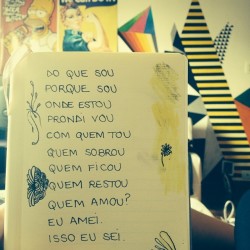 DO QUE SOU
PORQUE SOU
ONDE ESTOU
PRONDI VOU
COM QUEM TOU
QUEM SOBROU
QUEM FICOU
QUEM RESTOU
QUEM AMOU?
EU AMEI.
ISSO EU SEI.